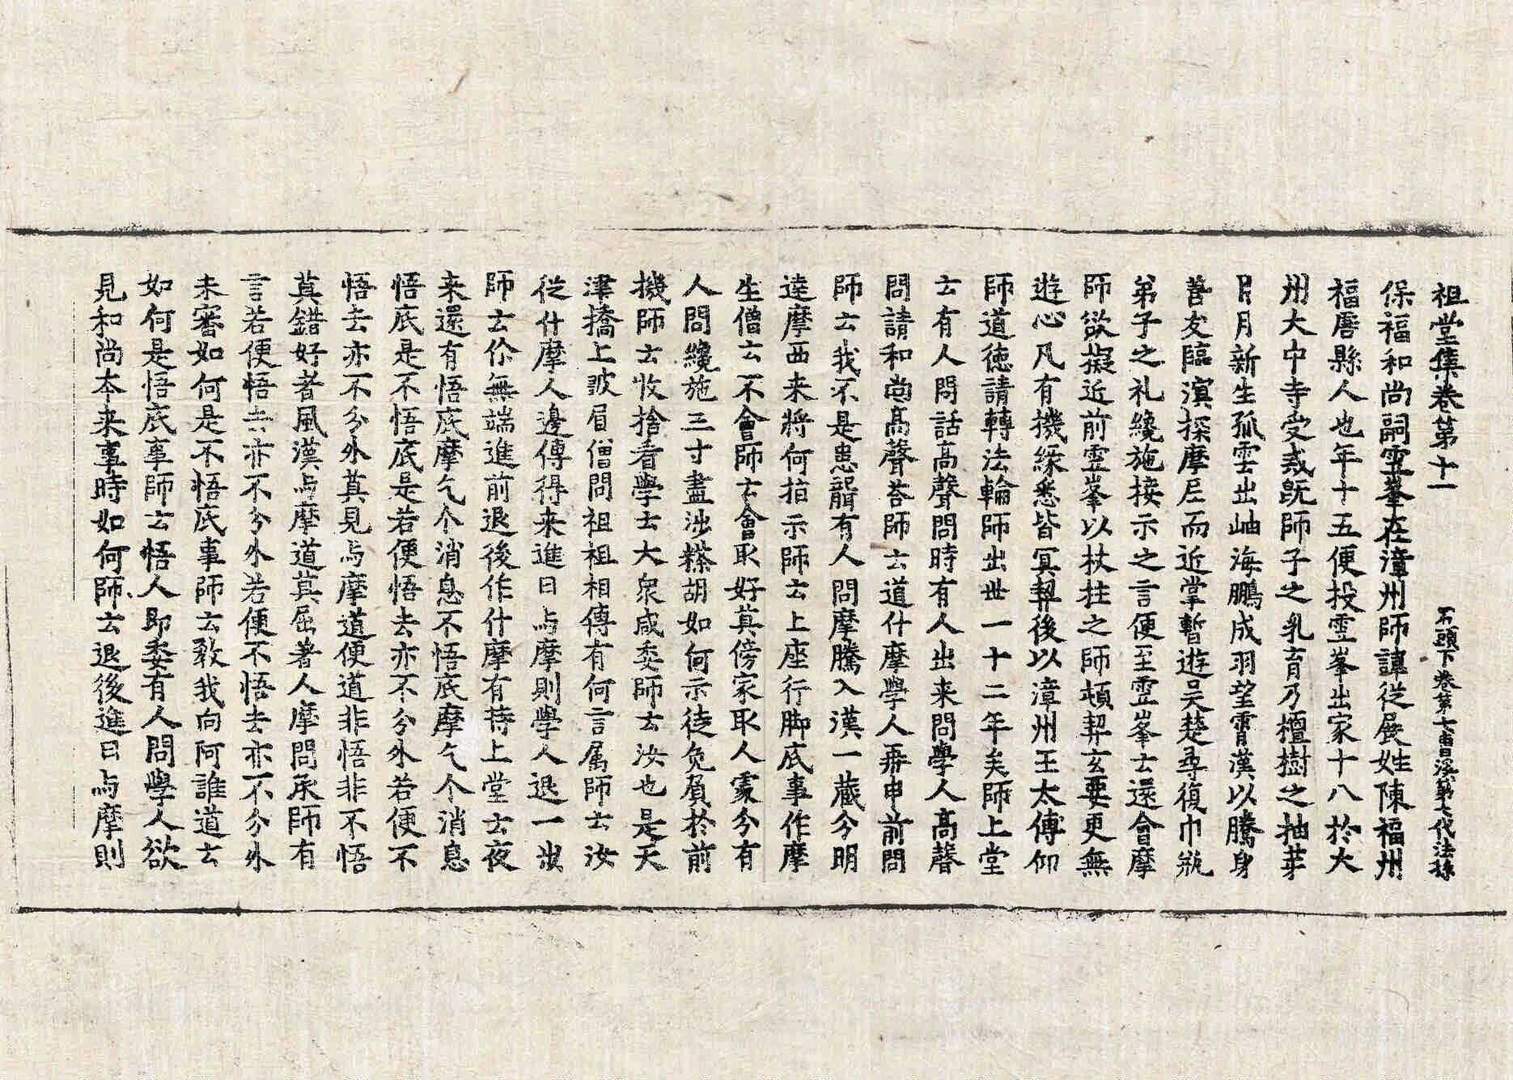 祖堂集卷第十一 石頭下卷第七曹溪第七代法孫
保福和尚嗣雪峯在漳州師諱從展姓陳福州
福唐縣人也年十五便投雪峯出家十八於大
州大中寺受戒旣師子之乳育乃檀樹之抽芽
日月新生孤雲出岫海鵬成羽望霄漢以騰身
善友臨溟探摩尼而近掌暫遊吴楚尋復巾瓶
弟子之礼纔施接示之言便至雪峯云還會摩
師欲擬近前雪峯以杖拄之師頓契玄要更無
遊心凡有機緣悉皆冥契後以漳州王太傅仰
師道德請轉法輪師出世一十二年矣師上堂
云有人問話高聲問時有人出来問學人高聲
問請和尚高聲荅師云道什摩學人再申前問
師云我不是患聾有人問摩騰入漢一藏分明
達摩西来將何指示師云上座行脚底事作摩
生僧云不會師云會取好莫傍家取人處分有
人問纔施三寸盡涉糅胡如何示徒免負於前
機師云收捨看學士大衆咸委師云汝也是天
津橋上皺眉僧問祖祖相傳有何言属師云汝
從什摩人邊傳得来進曰与摩則學人退一步
師云你無端進前退後作什摩有時上堂云夜
来還有悟底摩乞个消息不悟底摩乞个消息
悟底是不悟底是若便悟去亦不分外若便不
悟去亦不分外莫見与摩道便道非悟非不悟
莫錯好者風漢与摩道莫屈著人摩問承師有
言若便悟去亦不分外若便不悟去亦不分外
未審如何是不悟底事師云敎我向阿誰道云
如何是悟底事師云悟人即委有人問學人欲
見和尚本来事時如何師云退後進曰与摩則